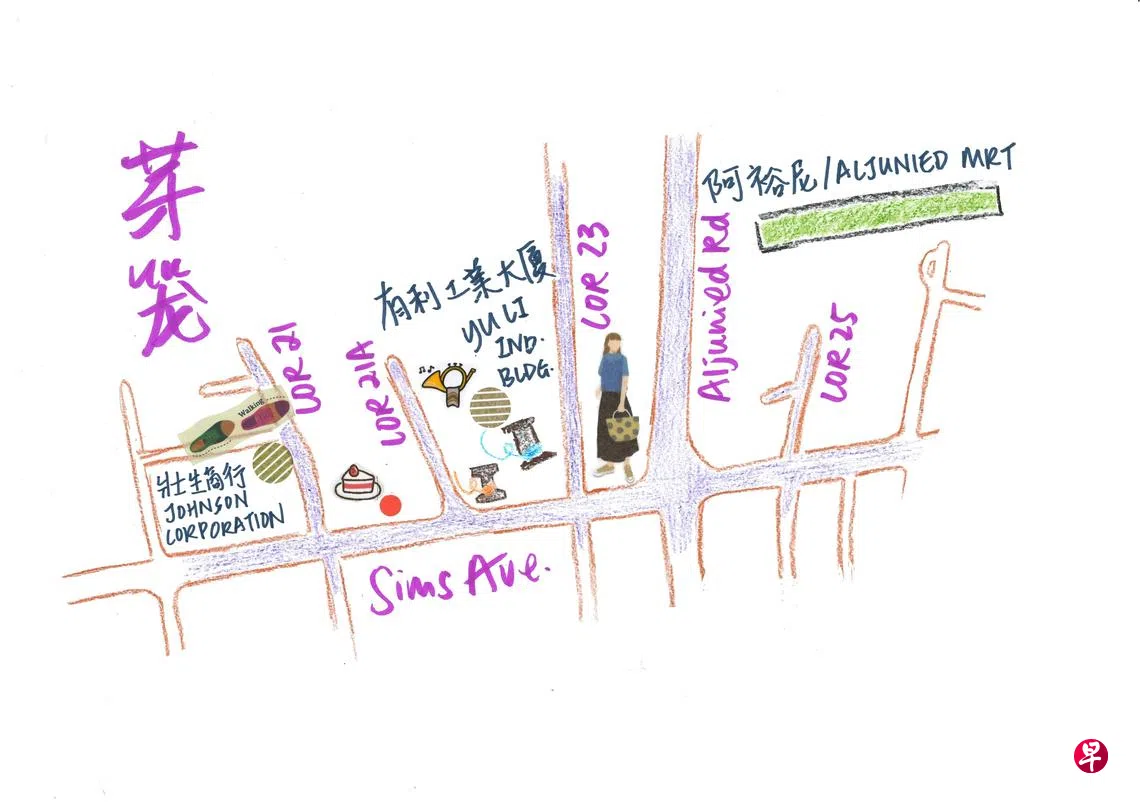 芽笼
阿裕尼/ALJUNIED MRT
有利工業大厦
YU LI
IND.
BLDG.
LOR 23
Aljunied Rd
LOR 25
LOR 21
LOR 21A
Walking
壮生商行
JOHNSON
CORPORATION
Sims Ave.
早